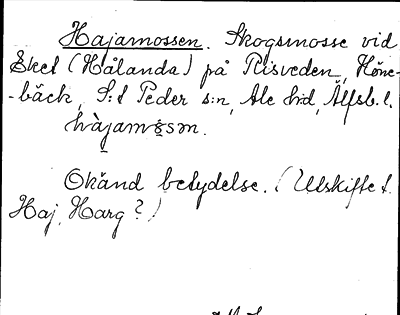 Hajamossen. Skogsmosse vid
Eket (Hålanda) på Risveden, Höne-
-bäck, S:t Peder s:n, Ale hd, Älfsb. l.
hàjamɔsən.
Okänd betydelse. (Utskifte t.
Haj, Harg?)